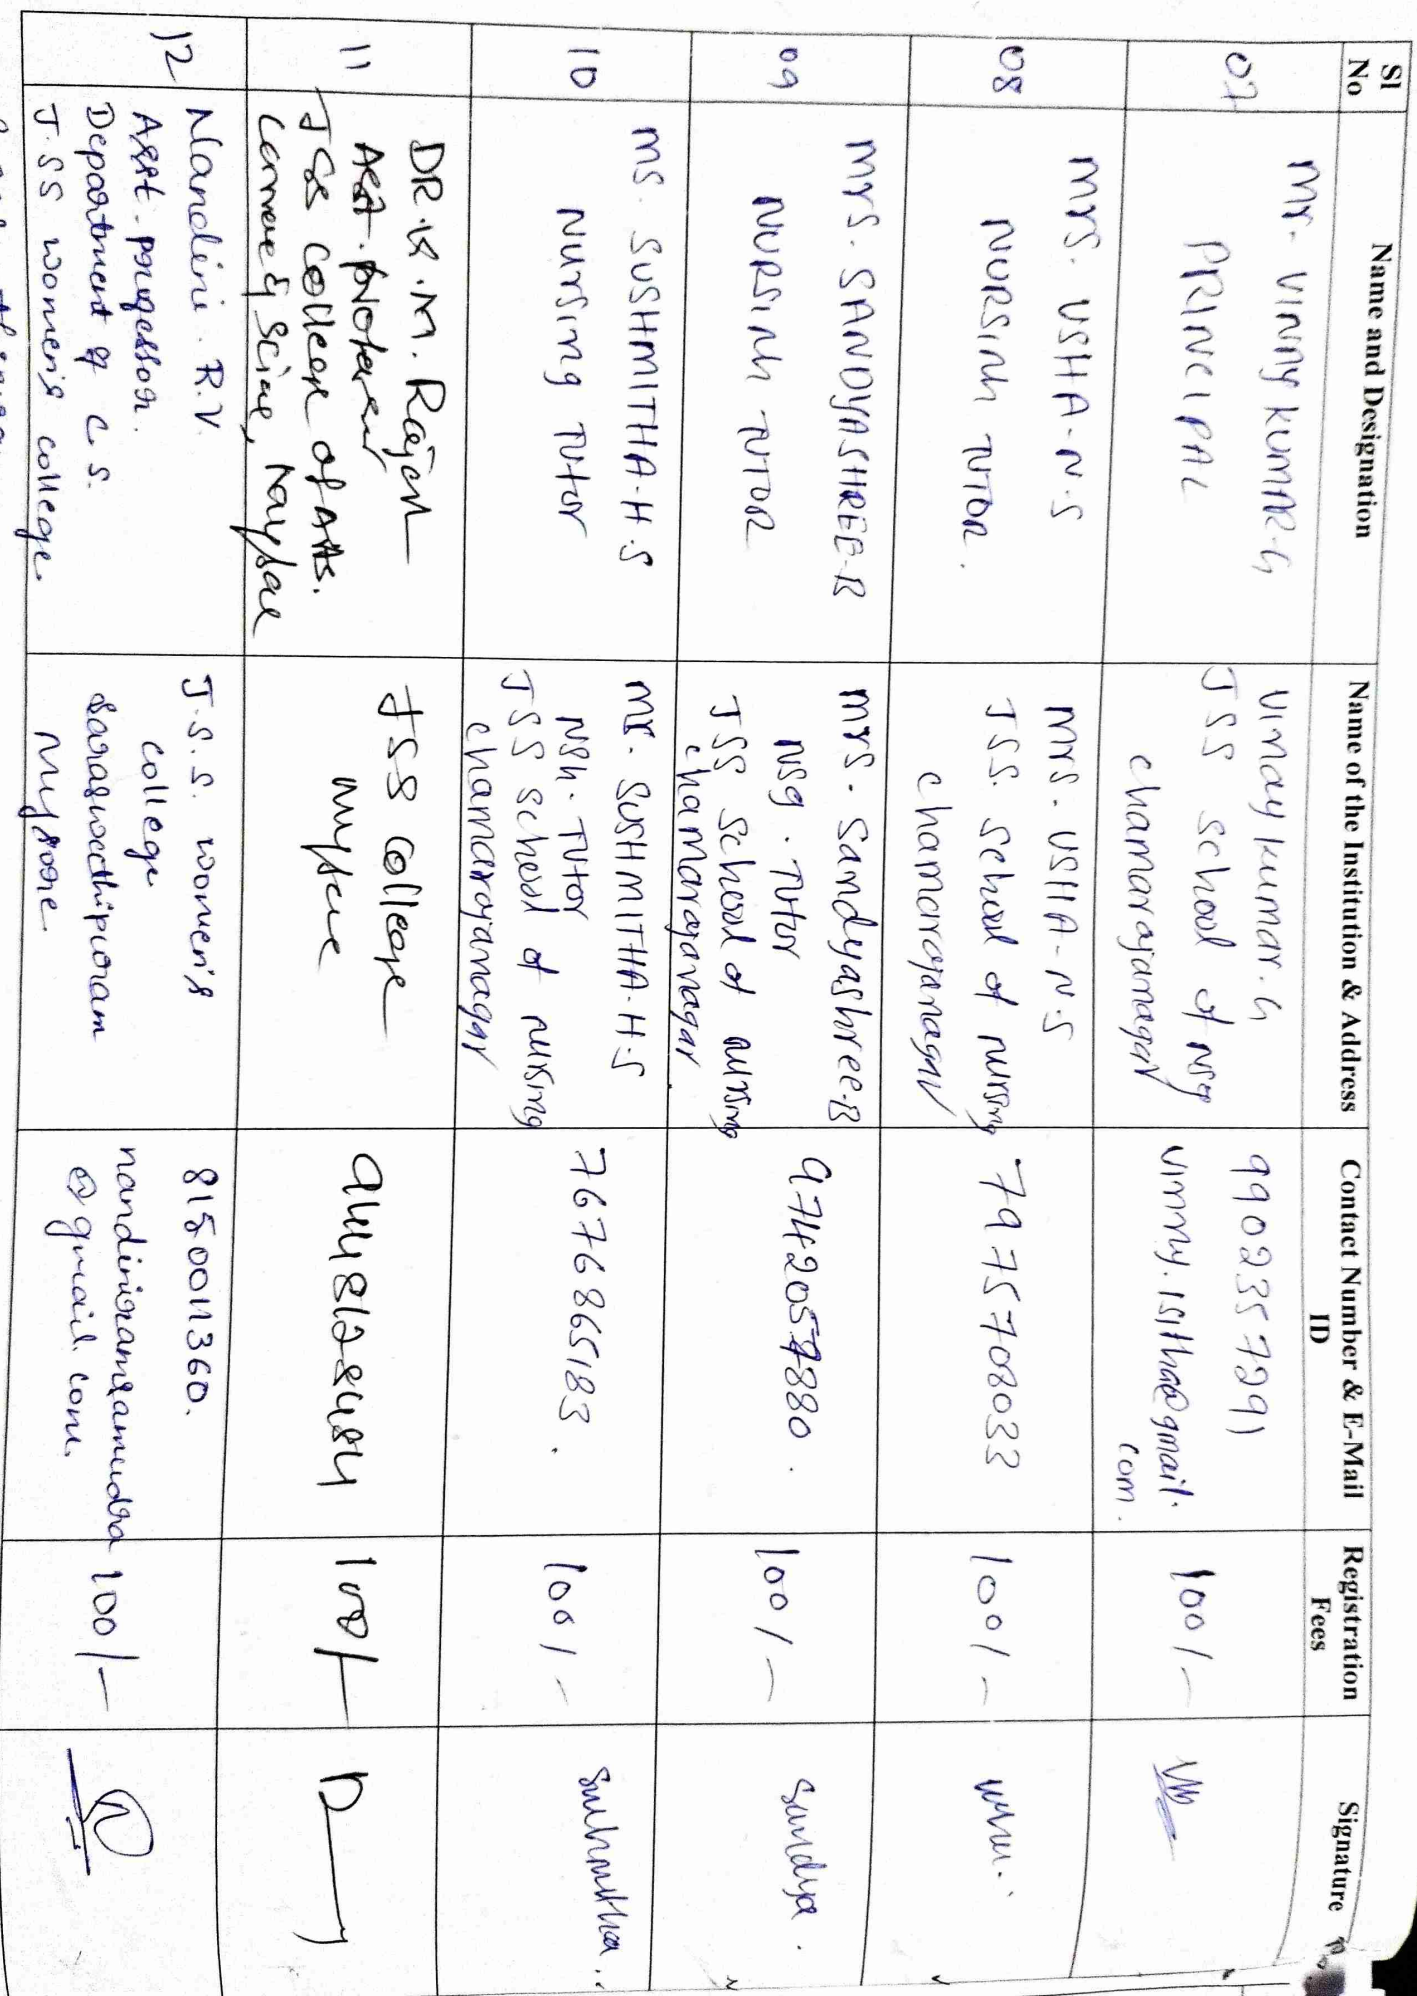 Sl No
Name and Designation
Name of the Institution & Address
Contact Number & E-Mail ID
Registration Fees
Signature
07
Mr. VINNY KUMAR.G
PRINCIPAL
VINAY KUMAR.G
JSS School of Nsg
chamarajanagar
9902357291
vinny.151tha@gmail.
com.
100/-
08
Mrs. USHA.N.S
NURSING TUTOR.
Mrs. USHA-N.S
JSS. School of nursing
chamarajanagar
7975708033
100/-
09
Mrs. SANDYASHREE-B
NURSING TUTOR
Mrs. Sandyashree-B
Nsg. Tutor
JSS School of nursing
chamarajanagar.
9742057880.
100/-
Sandya.
10
Ms. SUSHMITHA.H.S
Nursing Tutor
Mr. SUSHMITHA.H.S
NSG. Tutor
JSS School of nursing
chamarajanagar
7676865183.
100/-
Sushmitha.
11
DR.K.M. Rajesh
Asst.
JSS College of Arts.
JSS College
9448128484
100/-
12
Nandini. R.V.
Asst. professor.
Department of C.S.
J.SS women's college.
J.S.S. women's
college
Saraswathipuram
Mysore
8150011360.
nandiniramasamudra
@gmail.com.
100/-